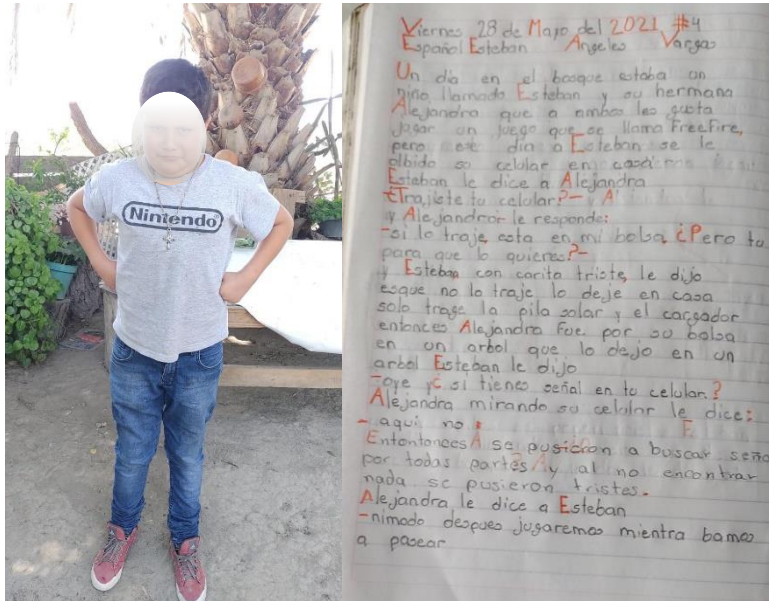 Nintendo
Viernes 28 de Mayo del 2021 #4
Español Esteban Angeles Vargas
Un dia en el bosque estaba un
niño llamado Esteban y su hermana
Alejandra que a ambos les gusta
jugar un juego que se llama FreeFire,
pero ese dia a Esteban se le
olbido su celular en casa
Esteban le dice a Alejandra
-¿Trajiste tu celular?- 
y Alejandra- le responde:
-si lo traje, esta en mi bolsa, ¿Pero tu
para que lo quieres?-
y Esteban con carita triste, le dijo
esque no lo traje lo deje en casa
solo trage la pila solar y el cargador
entonces Alejandra fue por su bolsa
en un arbol que lo dejo en un
arbol Esteban le dijo
-oye y ¿si tienes señal en tu celular.?
Alejandra mirando su celular le dice:
- aqui no.
Entontonces A se pusieron a buscar seña
por todas partes y al no encontrar
nada se pusieron tristes.
Alejandra le dice a Esteban
-nimodo despues jugaremos mientra bamos
a pasear